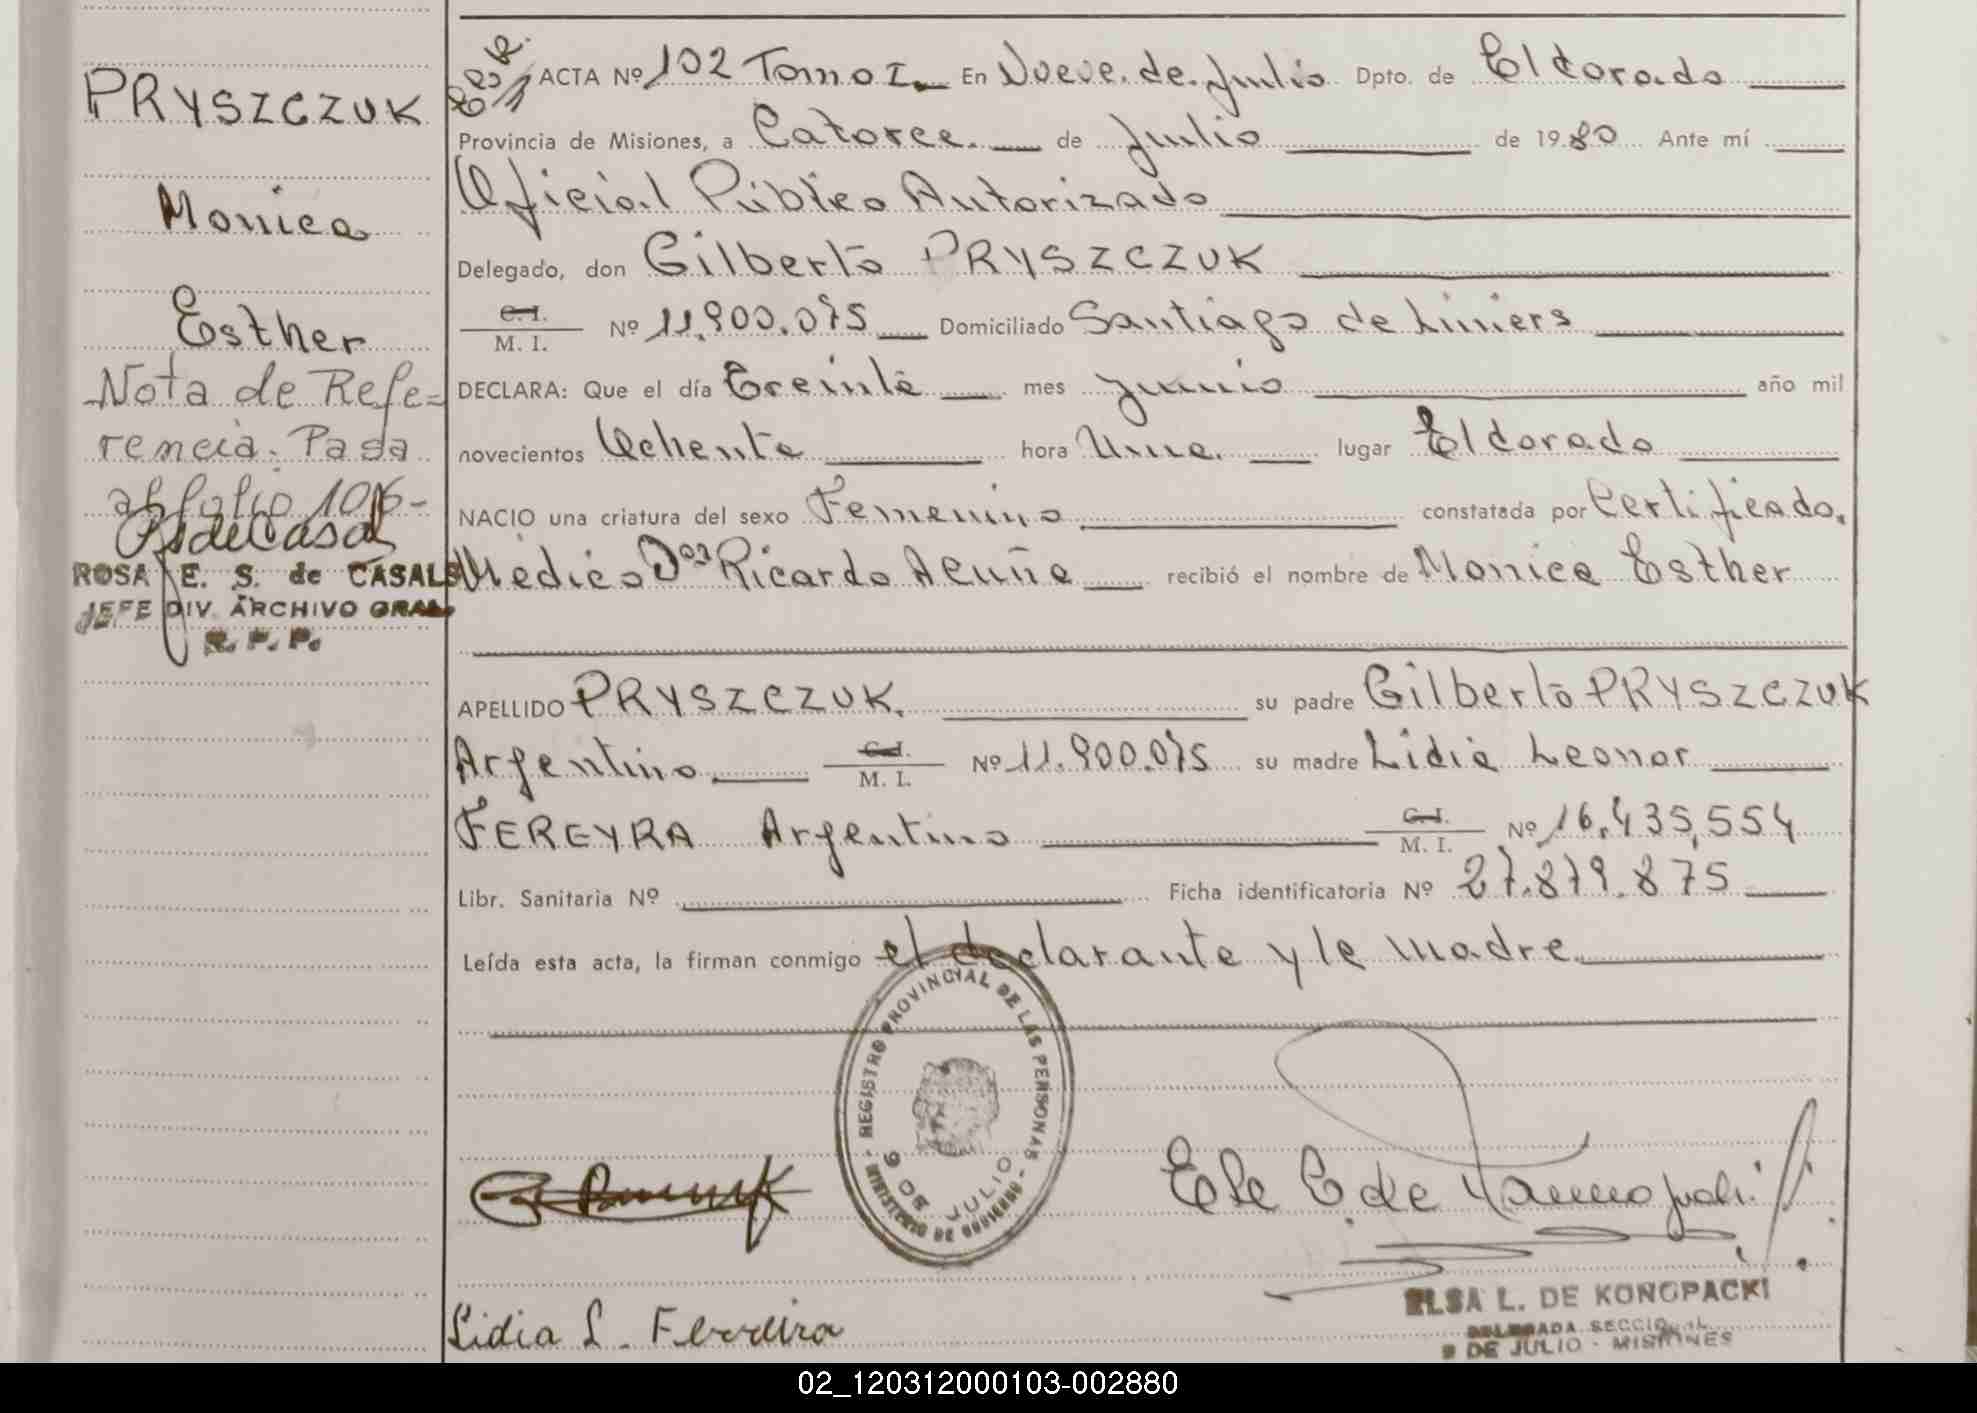 PRYSZCZUK
Monica
Esther
Nota de Refe=
rencia: Pasa
al folio 106-
RsdeCasal
ROSA E. S. de CASALS
JEFE DIV. ARCHIVO GRAL.
R. P. P.
ACTA Nº 102 Tomo I. En Nueve de Julio Dpto. de Eldorado
Provincia de Misiones, a Catorce de Julio de 1980 Ante mí
Oficial Público Autorizado
Delegado, don Gilberto PRYSZCZUK
C. I.
M. I. Nº 11.900.075 Domiciliado Santiago de Liniers
DECLARA: Que el día Treinta mes junio año mil
novecientos Ochenta hora Una. lugar Eldorado
NACIO una criatura del sexo Femenino constatada por Certificado.
Médico Dor Ricardo Acuña recibió el nombre de Monica Esther
APELLIDO PRYSZCZUK. su padre Gilberto PRYSZCZUK
Argentino C. I.
M. I. Nº 11.900.075 su madre Lidia Leonor
FEREYRA Argentino C. I.
M. I. Nº 16.435,554
Libr. Sanitaria Nº Ficha identificatoria Nº 27.879.875
Leída esta acta, la firman conmigo el declarante y la madre
REGISTRO PROVINCIAL DE LAS PERSONAS - MINISTERIO DE GOBIERNO -
9 DE JULIO
Lidia L. Ferreira
ELSA L. DE KONOPACKI
DELEGADA SECCIONAL
9 DE JULIO - MISIONES
02_120312000103-002880